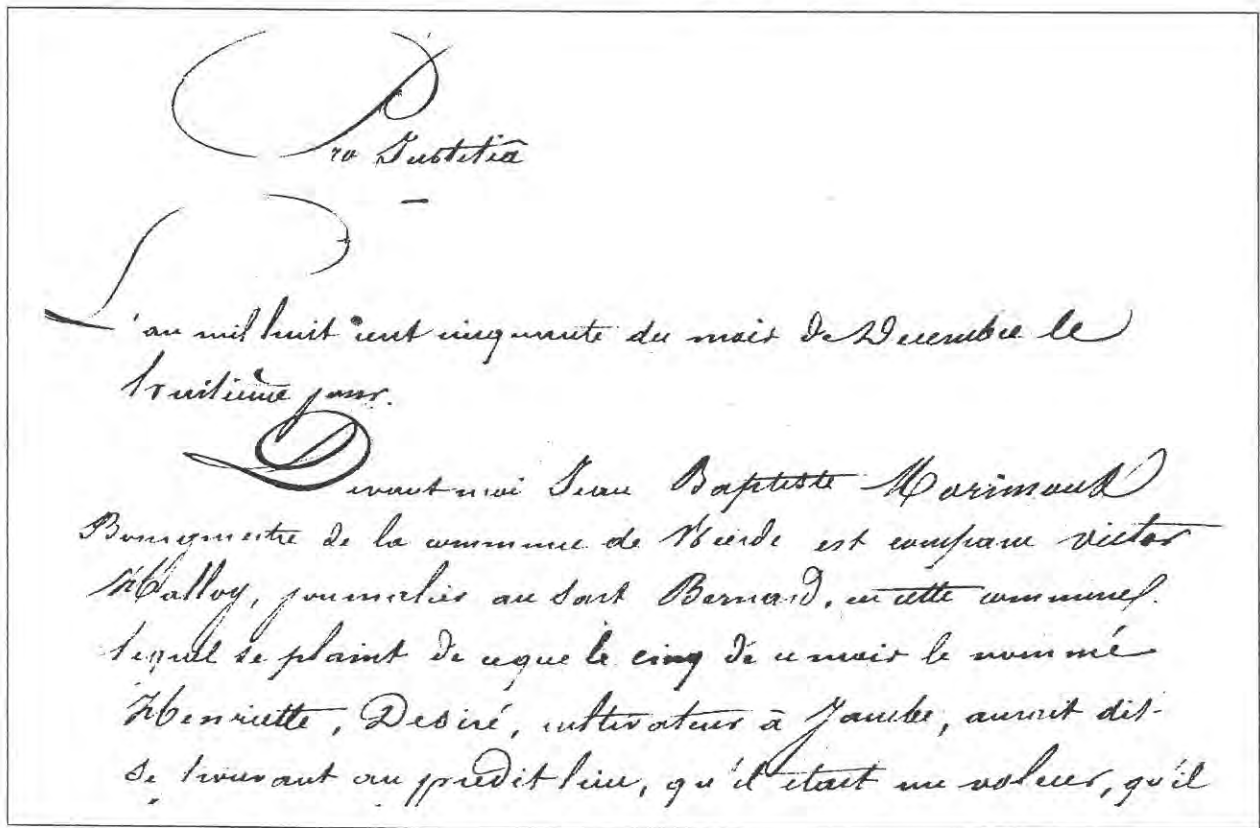 Pro Justitia
L'an mil huit cent cinquante du mois de Decembre le
huitième jour.
Devant moi Jean Baptiste Marimont
Bourgmestre de la commune de Wierde est comparu victor
Malloy, journalier au Sart Bernard, en cette commune.
lequel se plaint de ce que le cinq de ce mois le nommé
Henriette, Desiré, cultivateur à Jambe, aurait dit
se trouvant au prédit lieu, qu'il était un voleur, qu'il